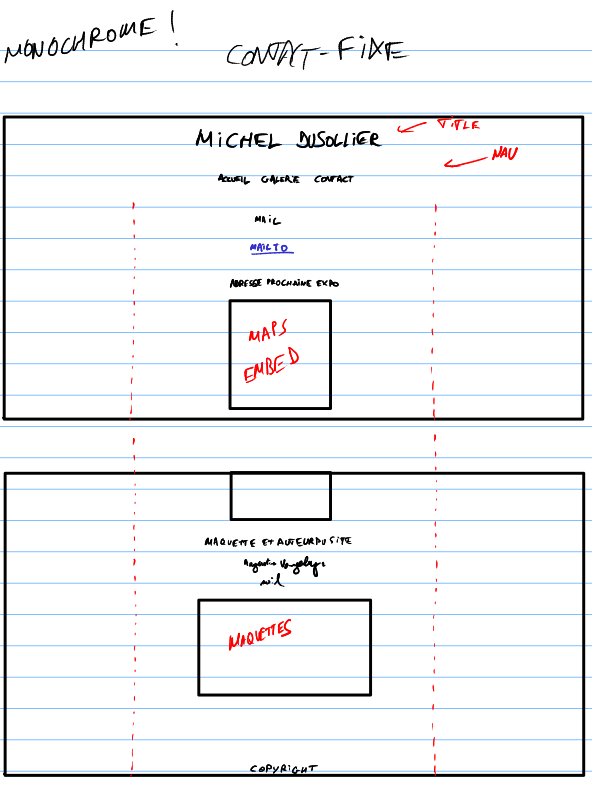 MONOCHROME !
CONTACT-FIXE
MICHEL DUSOLLIER
TITLE
NAV
ACCUEIL GALERIE CONTACT
MAIL
MAILTO
ADRESSE PROCHAINE EXPO
MAPS
EMBED
MAQUETTE ET AUTEUR DU SITE
mail
MAQUETTES
COPYRIGHT